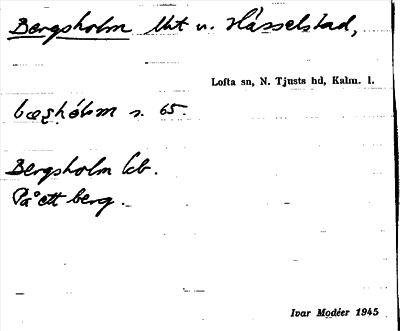 Bergsholm lht u. Hässelstad,
Lofta sn, N. Tjusts hd, Kalm. l.
s. 65.
Bergsholm kb.
På ett berg.
Ivar Modéer 1945